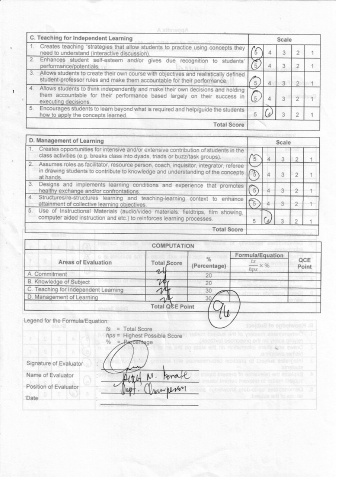 C. Teaching for Independent Learning Scale
1. Creates teaching strategies that allow students to practice using concepts they need to understand (interactive discussion). 5 4 3 2 1
2. Enhances student self-esteem and/or gives due recognition to students' performance/potentials. 5 4 3 2 1
3. Allows students to create their own course with objectives and realistically defined student-professor rules and make them accountable for their performance. 5 4 3 2 1
4. Allows students to think independently and make their own decisions and holding them accountable for their performance based largely on their success in executing decisions. 5 4 3 2 1
5. Encourages students to learn beyond what is required and help/guide the students how to apply the concepts learned. 5 4 3 2 1
Total Score
D. Management of Learning Scale
1. Creates opportunities for intensive and/or extensive contribution of students in the class activities (e.g. breaks class into dyads, triads or buzz/task groups). 5 4 3 2 1
2. Assumes roles as facilitator, resource person, coach, inquisitor, integrator, referee in drawing students to contribute to knowledge and understanding of the concepts at hands. 5 4 3 2 1
3. Designs and implements learning conditions and experience that promotes healthy exchange and/or confrontations. 5 4 3 2 1
4. Structures/re-structures learning and teaching-learning context to enhance attainment of collective learning objectives. 5 4 3 2 1
5. Use of Instructional Materials (audio/video materials: fieldtrips, film showing, computer aided instruction and etc.) to reinforces learning processes. 5 4 3 2 1
Total Score
COMPUTATION
Areas of Evaluation Total Score % (Percentage) Formula/Equation ts/hps x % QCE Point
A. Commitment 24 20
B. Knowledge of Subject 24 20
C. Teaching for Independent Learning 24 30
D. Management of Learning 24 30
Total QCE Point 96
Legend for the Formula/Equation:
ts = Total Score
hps = Highest Possible Score
% = Percentage
Signature of Evaluator
Name of Evaluator
Position of Evaluator Dept. Chairperson
Date